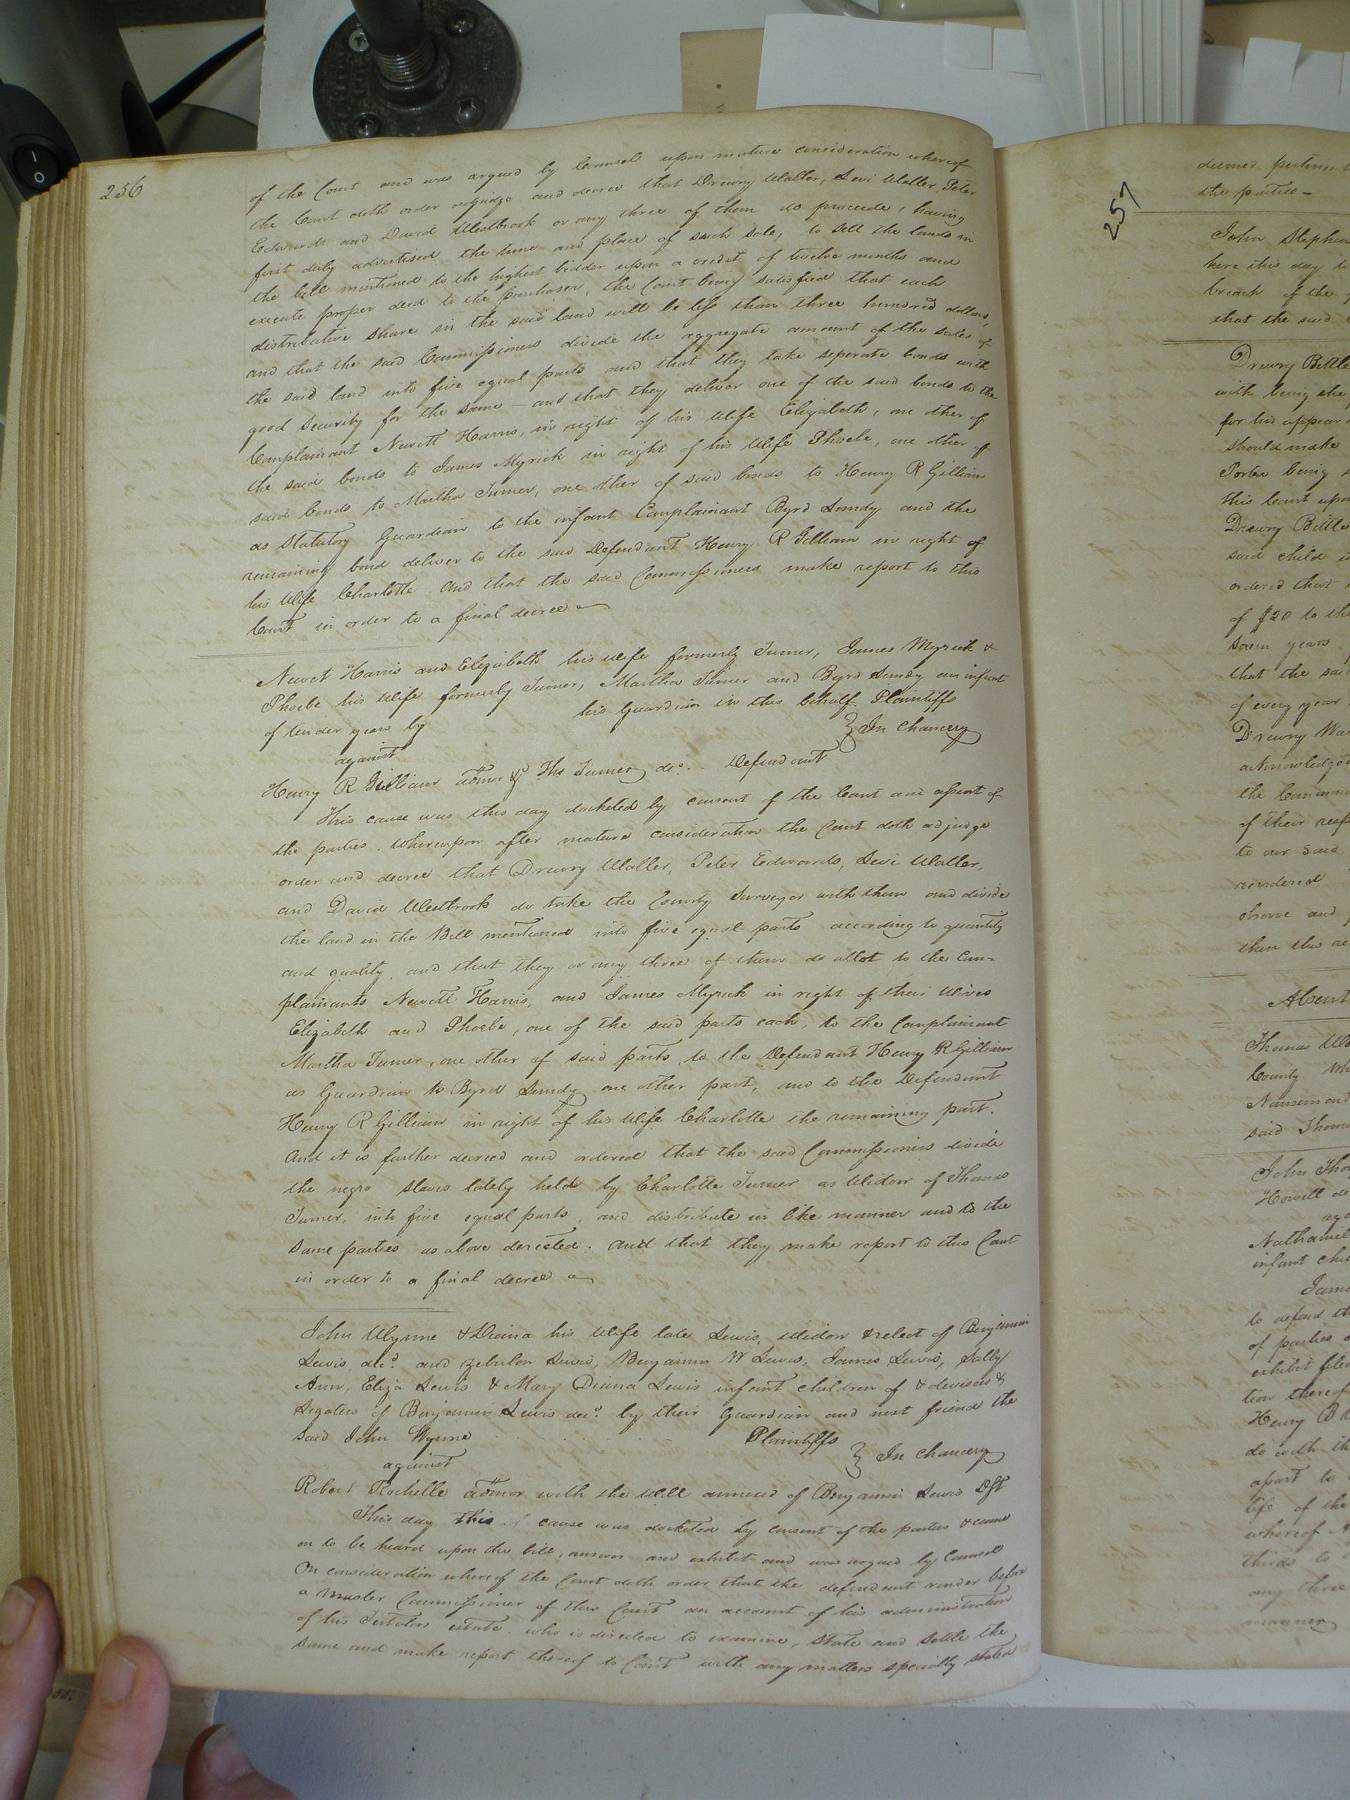 256
of the Court and was argued by Counsel upon mature consideration whereof
the Court doth order adjudge and decree that Drewry Waller, Levi Waller, Peter
Edwards and David Westbrook or any three of them do proceede, having
first duly advertised the time and place of such sale, to sell the lands in
the bill mentioned to the highest bidder upon a credit of twelve months and
execute proper deed to the purchaser, the Court being satisfied that each
distributive share in the said land will be less than three hundred dollars,
and that the said Commissioners divide the aggregate amount of the sales of
the said land into five equal parts and that they take seperate bonds with
good security for the same - and that they deliver one of the said bonds to the
Complainant Newitt Harris, in right of his Wife Elizabeth, one other of
the said bonds to James Myrick in right of his Wife Phoebe, one other of
said bonds to Martha Turner, one other of said bonds to Henry R Gilliam
as Statutory Guardian to the infant Complainant Byrd Lundy and the
remaining bond deliver to the said Defendant Henry R Gilliam in right of
his Wife Charlotte. And that the said Commissioners make report to this
Court in order to a final decree
Newet Harris and Elizabeth his wife formerly Turner, James Myrick &
Phoebe his Wife formerly Turner, Martha Turner and Byrd Lundy an infant
of tender years by his Guardian in this behalf. Plaintiffs
against } In Chancery
Henry R Gilliam admor of Ths Turner dec. Defendant
This cause was this day docketed by consent of the Court and assent of
the parties. Whereupon after mature consideration the Court doth adjudge
order and decree that Drewry Waller, Peter Edwards, Levi Waller,
and David Westbrook do take the County Surveyor with them and divide
the land in the Bill mentioned into five equal parts according to quantity
and quality and that they or any three of them do allot to the Com-
plainants Newitt Harris, and James Myrick in right of their Wives
Elizabeth and Phoebe, one of the said parts each, to the Complainant
Martha Turner, one other of said parts, to the Defendant Henry R Gilliam
as Guardian to Byrd Lundy one other part, and to the Defendant
Henry R Gilliam in right of his Wife Charlotte the remaining part.
And it is further decreed and ordered that the said Commissioners divide
the negro slaves lately held by Charlotte Turner as Widow of Thomas
Turner, into five equal parts, and distribute in like manner and to the
same parties as above directed. And that they make report to this Court
in order to a final decree
John Wynne & Diana his Wife late Lewis, widow & relect of Benjamin
Lewis dec. and Zebulon Lewis, Benjamin W Lewis, James Lewis, Sally
Ann, Eliza Lewis & Mary Diana Lewis infant children of & devisees &
Legatees of Benjamin Lewis dec. by their Guardian and next friend the
said John Wynne Plaintiffs
against } In Chancery
Robert Rochelle admor with the Will annexed of Benjamin Lewis Dft
This day this cause was docketed by consent of the parties & came
on to be heard upon the bill, answer and exhibit and was argued by Counsel
On consideration whereof the Court doth order that the defendant render before
a Master Commissioner of this Court an account of his administration
of his Testators estate. who is directed to examine, state and settle the
same and make report thereof to Court with any matters specially stated
257
deemed pertinent
the parties -
John Stephen
here this day
breach of the
that the said
Drewry Bittle
with being the
for his appear
should make
Porter being
this Court upon
Drewry Bittle
said child
ordered that
of $20 to the
seven years
that the said
of every year
Drewry Wa
acknowledge
the Common
of their resp
to our said
rendered
observe and
then this
Absent
Thomas
County. Wh
Nansemond
said Thomas
John Tho
Howell de
aga
Nathaniel
infant chi
Jam
to defend
of parties
exhibit filed
tion thereof
Henry B
do with th
apart to
life of the
whereof
thirds to
any three
manner